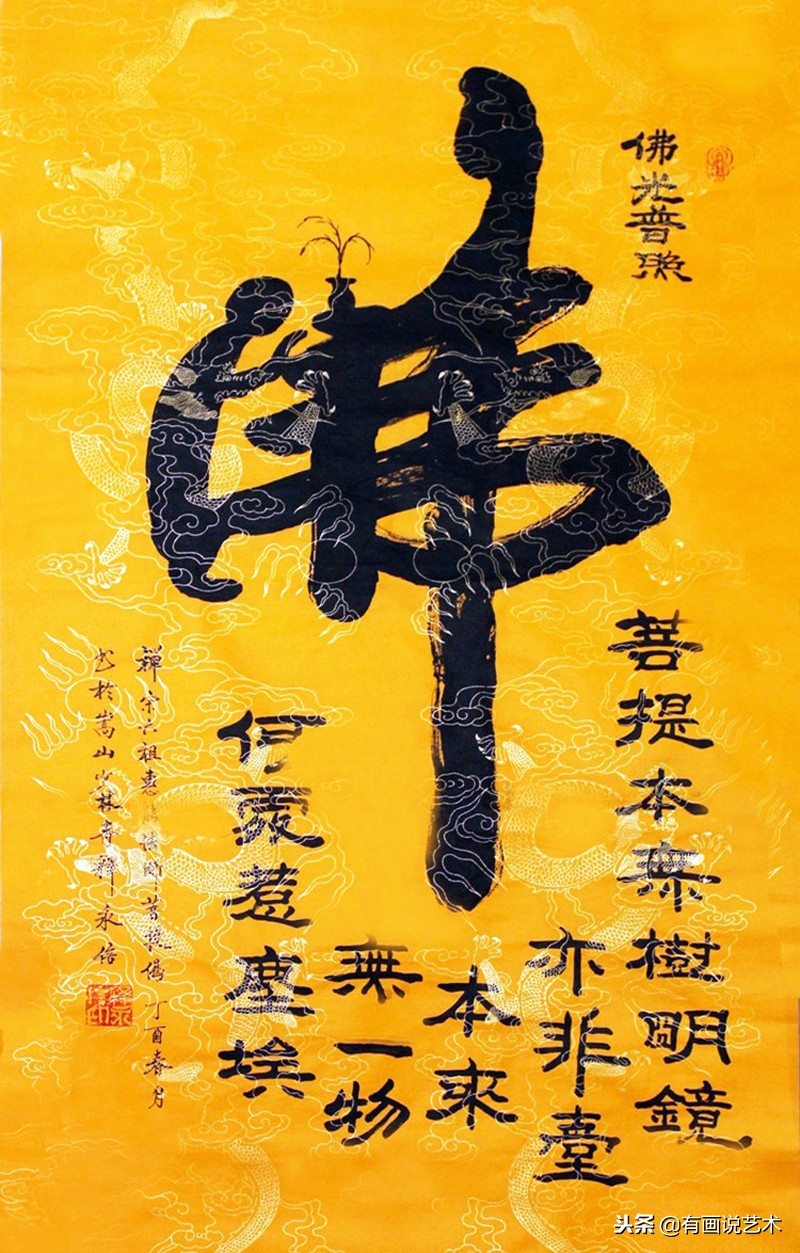 佛光普照
佛
菩提本無樹明鏡
亦非臺
本來
無一物
何處惹塵埃
禪宗六祖惠能禪師菩提偈 丁酉春月
書於嵩山少林寺釋永信
头条 @有画说艺术